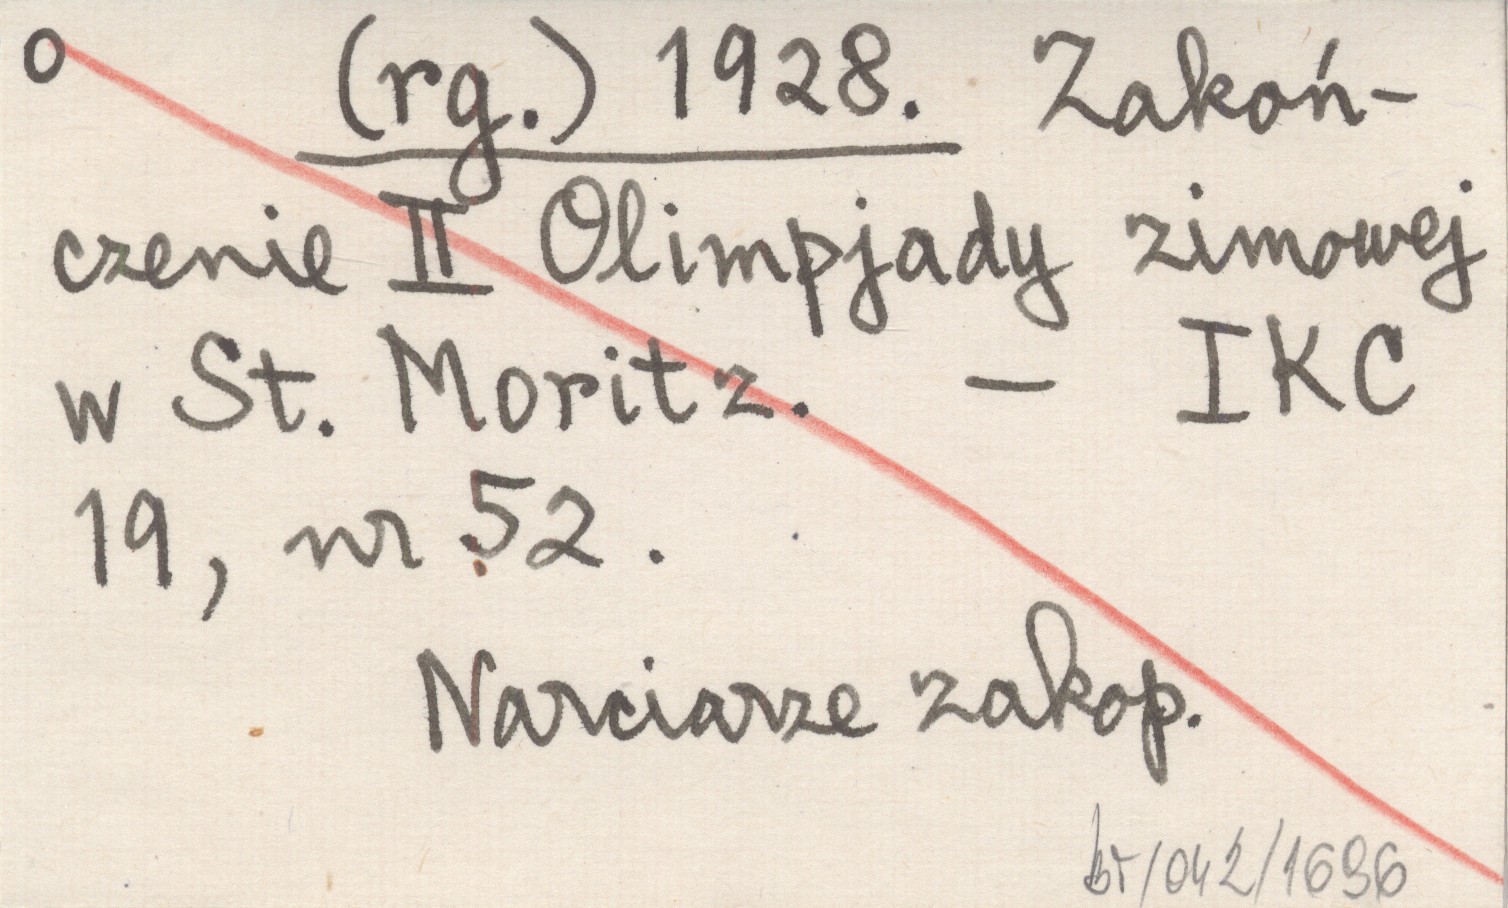 o (rg.) 1928. Zakoń-
czenie II Olimpjady zimowej
w St. Moritz. — IKC
19, nr 52.
Narciarze zakop.
br/042/1696